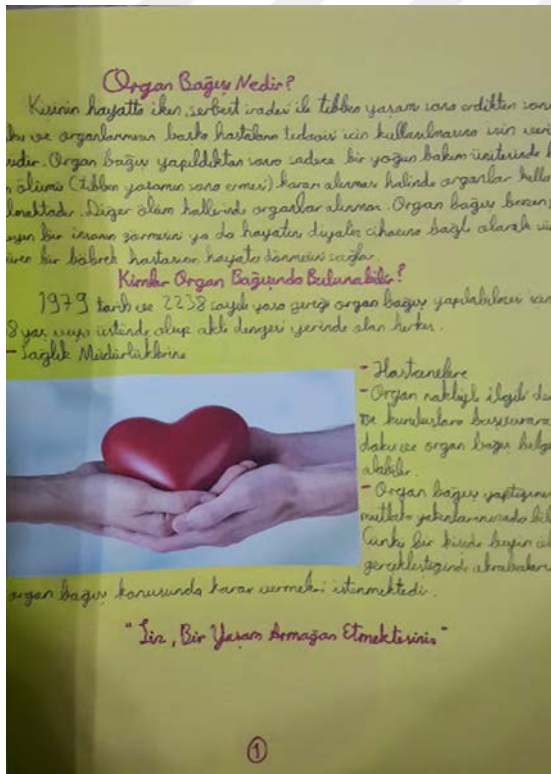 Organ Bağışı Nedir?
Kişinin hayatta iken, serbest iradesi ile tıbben yaşamı sona erdikten sonra
ve organlarının başka hastaların tedavisi için kullanılmasına izin
Organ bağışı yapıldıktan sonra sadece bir yoğun bakım ünitesinde
ölümü (tıbben yaşamın sona ermesi) kararı alınması halinde organlar
Diğer ölüm hallerinde organlar alınmaz. Organ bağışı
bir insanın görmesini ya da hayatını diyaliz cihazına bağlı olarak
bir böbrek hastasının hayata dönmesini sağlar.
Kimler Organ Bağışında Bulunabilir?
1979 tarih ve 2238 sayılı yasa gereği organ bağışı yapılabilmesi için
8 yaş veya üstünde olup akli dengesi yerinde olan herkes.
- Sağlık Müdürlüklerine
- Hastanelere
- Organ nakliyle ilgili
ve kuruluşlara başvurarak
doku ve organ bağış
alabilir.
- Organ bağışı yaptığınızı
mutlaka yakınlarınızada
Çünkü bir kişide beyin
gerçekleştiğinde
organ bağışı konusunda karar vermeleri istenmektedir.
"Siz, Bir Yaşam Armağan Etmektesiniz"
1